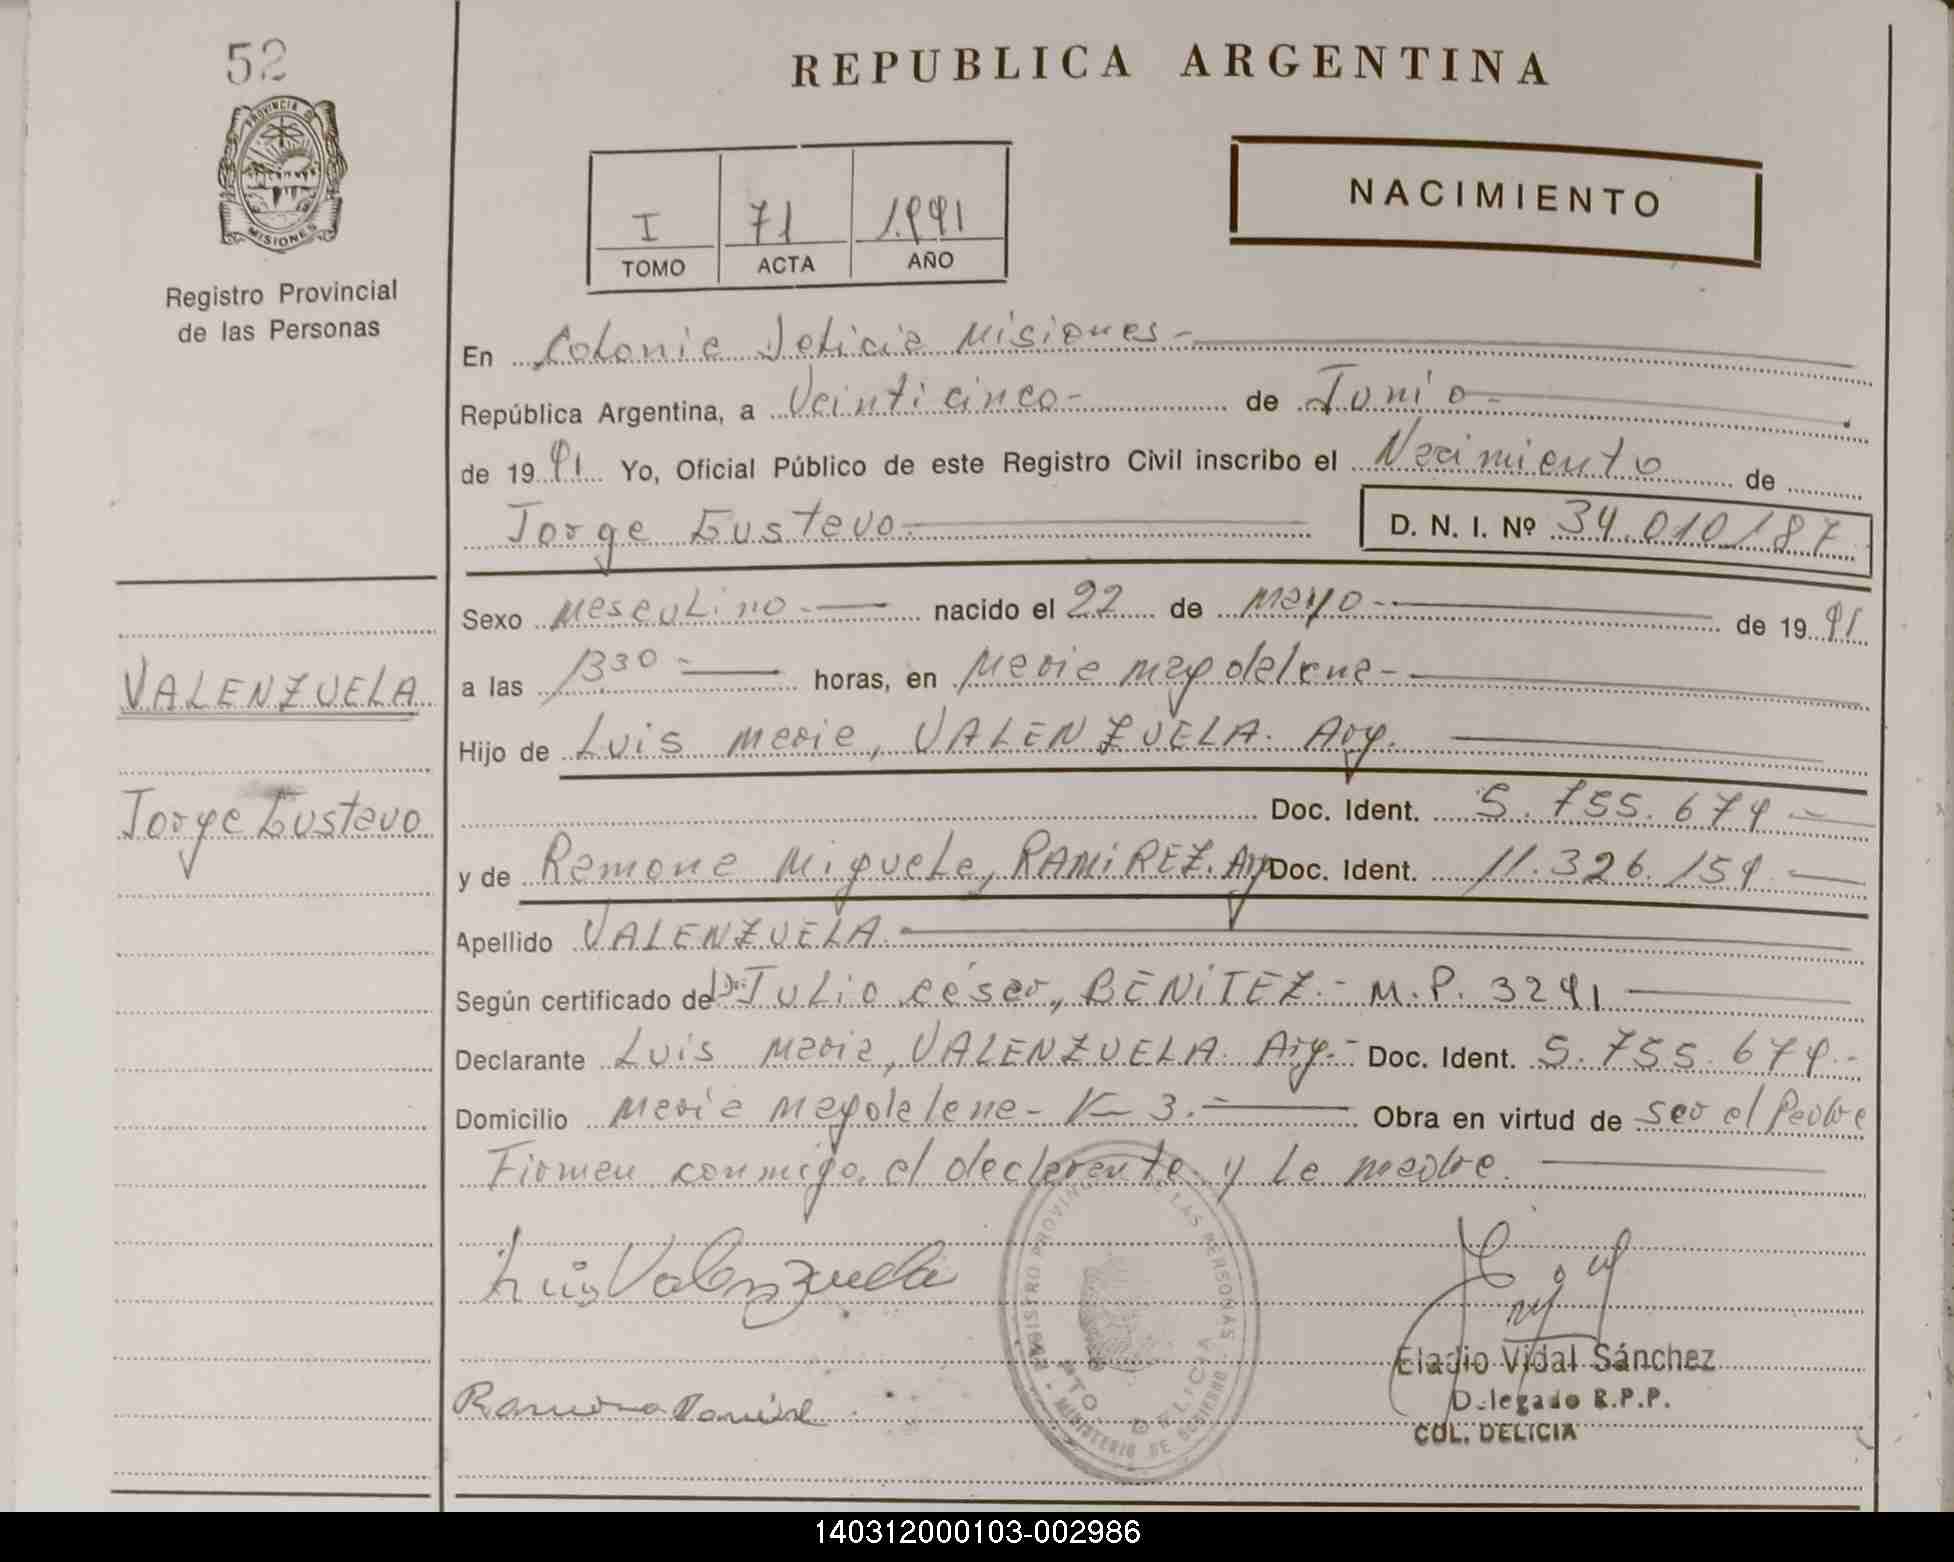 52
REPUBLICA ARGENTINA
PROVINCIA DE
MISIONES
Registro Provincial
de las Personas
I 71 1991
TOMO ACTA AÑO
NACIMIENTO
En Colonia Delicia Misiones-
República Argentina, a Veinticinco- de Junio-
de 1991 Yo, Oficial Público de este Registro Civil inscribo el Nacimiento de
Jorge Gustavo D. N. I. Nº 34.010187
Sexo Masculino.- nacido el 22 de mayo- de 1991
VALENZUELA
a las 1330- horas, en Maria magdalena-
Hijo de Luis maria, VALENZUELA. Arg.
Jorge Gustavo
Doc. Ident. 5.755.679
y de Ramona Miguela, RAMIREZ. Arg Doc. Ident. 11.326.159
Apellido VALENZUELA
Según certificado de Dr. Julio césar, BENITEZ.- M.P. 3291
Declarante Luis maria, VALENZUELA. Arg.- Doc. Ident. 5.755.679.-
Domicilio maria magdalena- K- 3.- Obra en virtud de ser el Padre
Firman conmigo el declarante y la madre.
Luis Valenzuela
REGISTRO PROVINCIAL DE LAS PERSONAS
MINISTERIO DE GOBIERNO
PTO. DELICIA
Eladio Vidal Sánchez
Delegado R.P.P.
COL. DELICIA
Ramona Ramirez
140312000103-002986